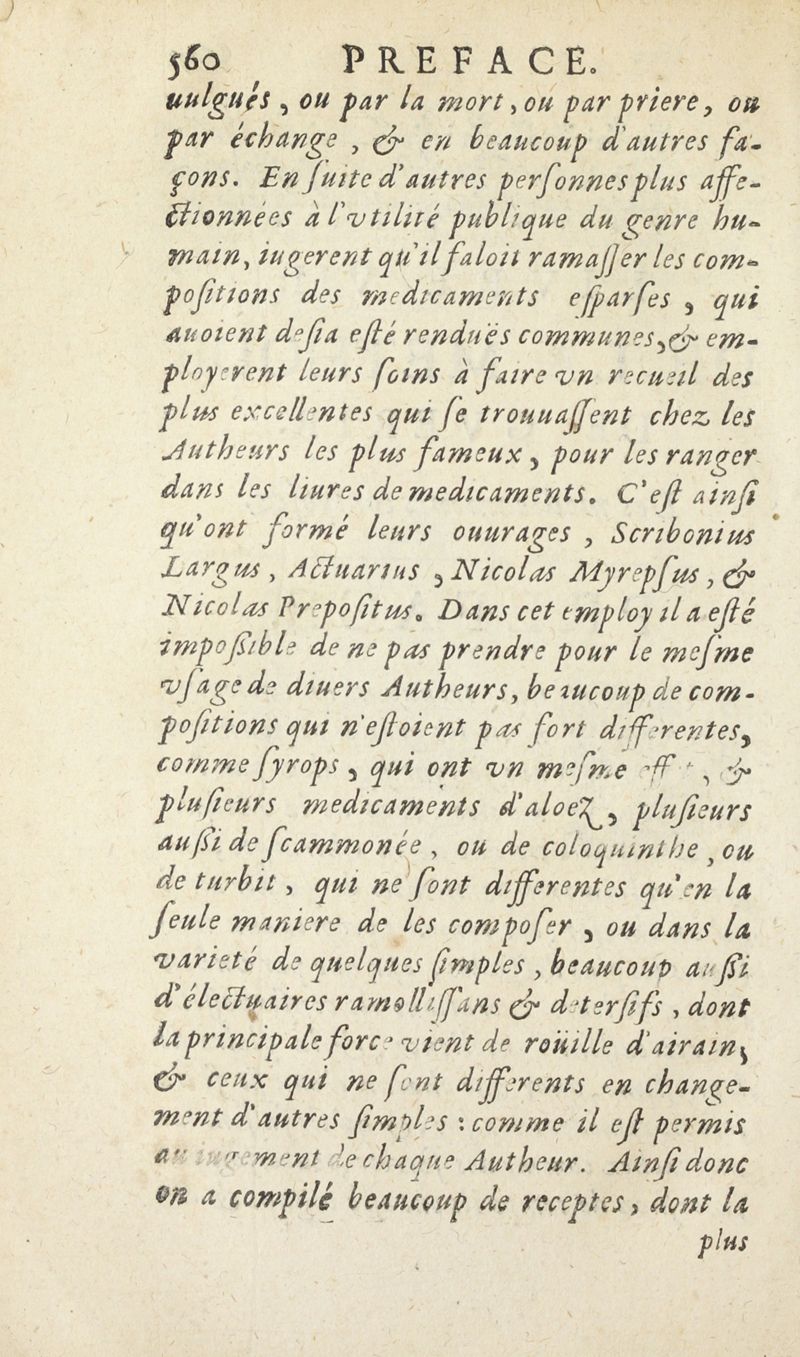 560 PREFACE.
uulgués, ou par la mort, ou par priere, ou
par échange, & en beaucoup d'autres fa-
çons. En ſuite d'autres perſonnes plus affe-
ctionnées à l'vtilité publique du genre hu-
main, iugerent qu'il faloit ramaſſer les com-
poſitions des medicaments eſparſes, qui
auoient deſia eſté renduës communes, & em-
ployerent leurs ſoins à faire vn recueil des
plus excellentes qui ſe trouuaſſent chez les
Autheurs les plus fameux, pour les ranger
dans les liures de medicaments. C'eſt ainſi
qu'ont formé leurs ouurages, Scribonius
Largus, Actuarius, Nicolas Myrepſus, &
Nicolas Prepoſitus. Dans cet employ il a eſté
impoſsible de ne pas prendre pour le meſme
vſage de diuers Autheurs, beaucoup de com-
poſitions qui n'eſtoient pas fort differentes,
comme ſyrops, qui ont vn meſme , &
pluſieurs medicaments d'aloez, pluſieurs
auſsi de ſcammonée, ou de coloquinthe, ou
de turbit, qui ne ſont differentes qu'en la
ſeule maniere de les compoſer, ou dans la
varieté de quelques ſimples, beaucoup auſsi
d'électuaires ramolliſſans & deterſifs, dont
la principale force vient de roüille d'airain,
& ceux qui ne ſont differents en change-
ment d'autres ſimples : comme il eſt permis
au de chaque Autheur. Ainſi donc
on a compilé beaucoup de receptes, dont la
plus